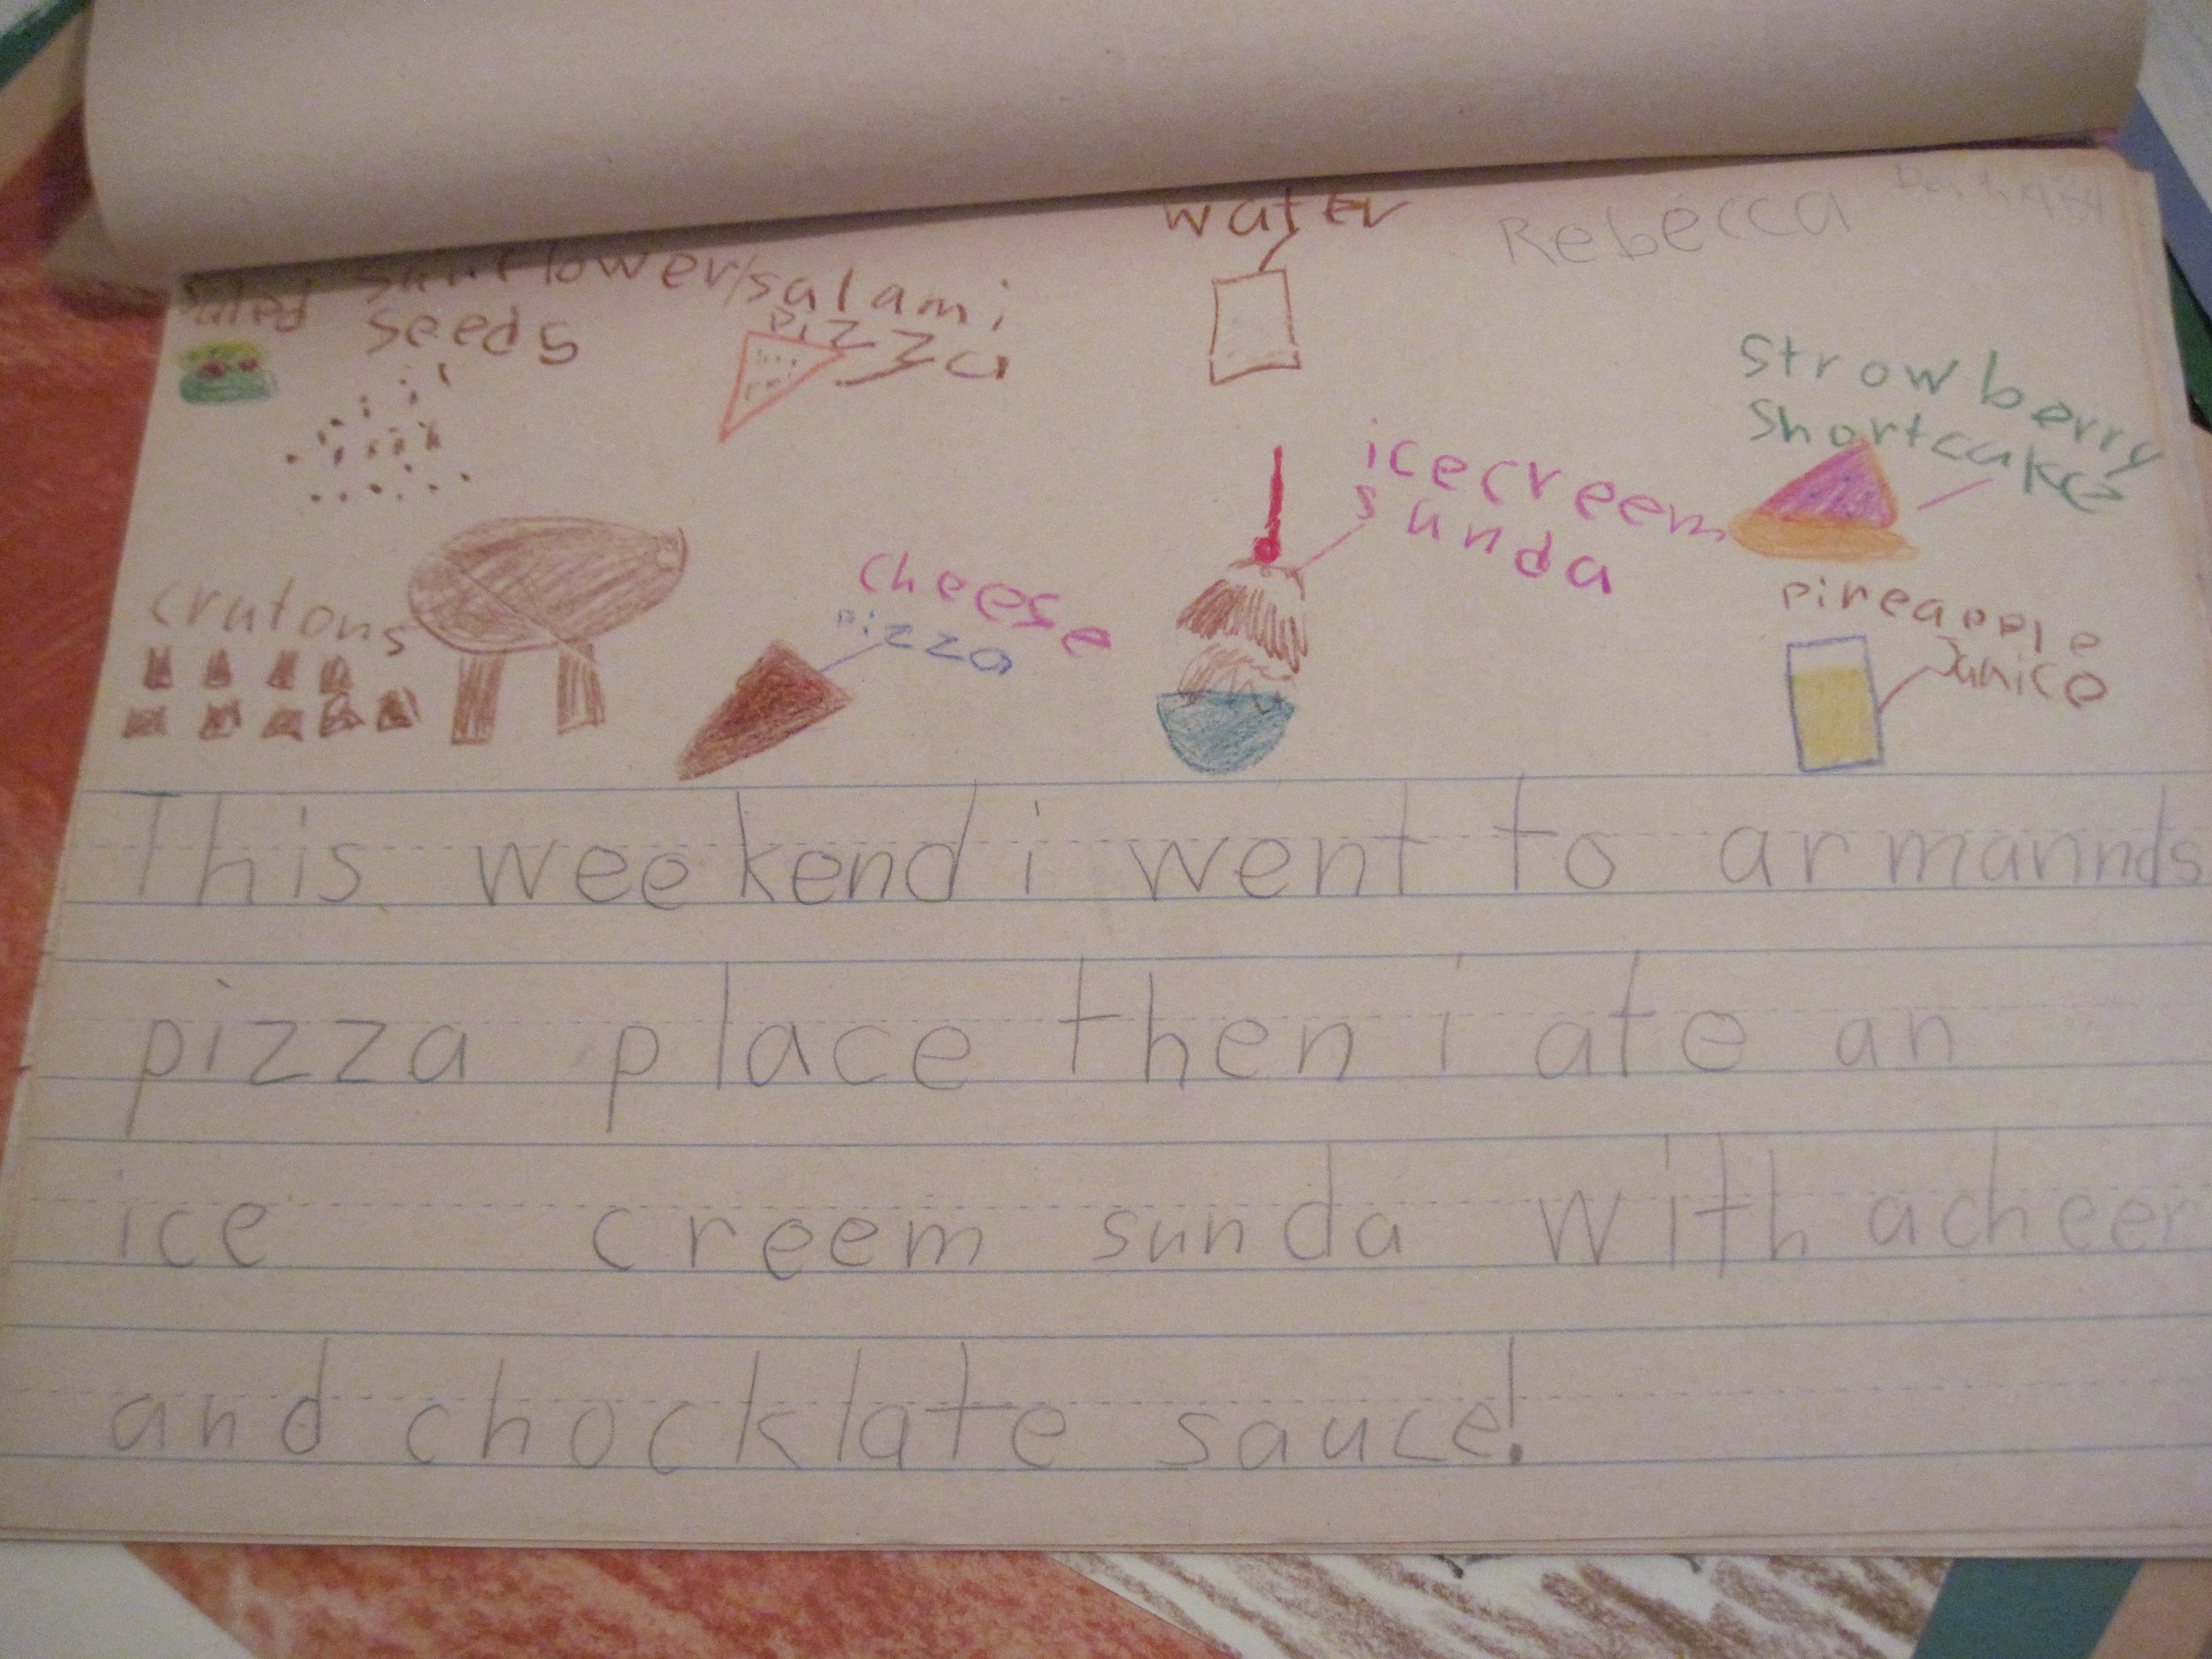 water
Rebecca
saled sunflower/salami
seeds
pizza
strowberry
shortcake
icecreem
sunda
cheese
pizza
crutons
pineapple
Junice
This weekend i went to armannds
pizza place then i ate an
ice creem sunda with a cheer
and chocklate sauce!